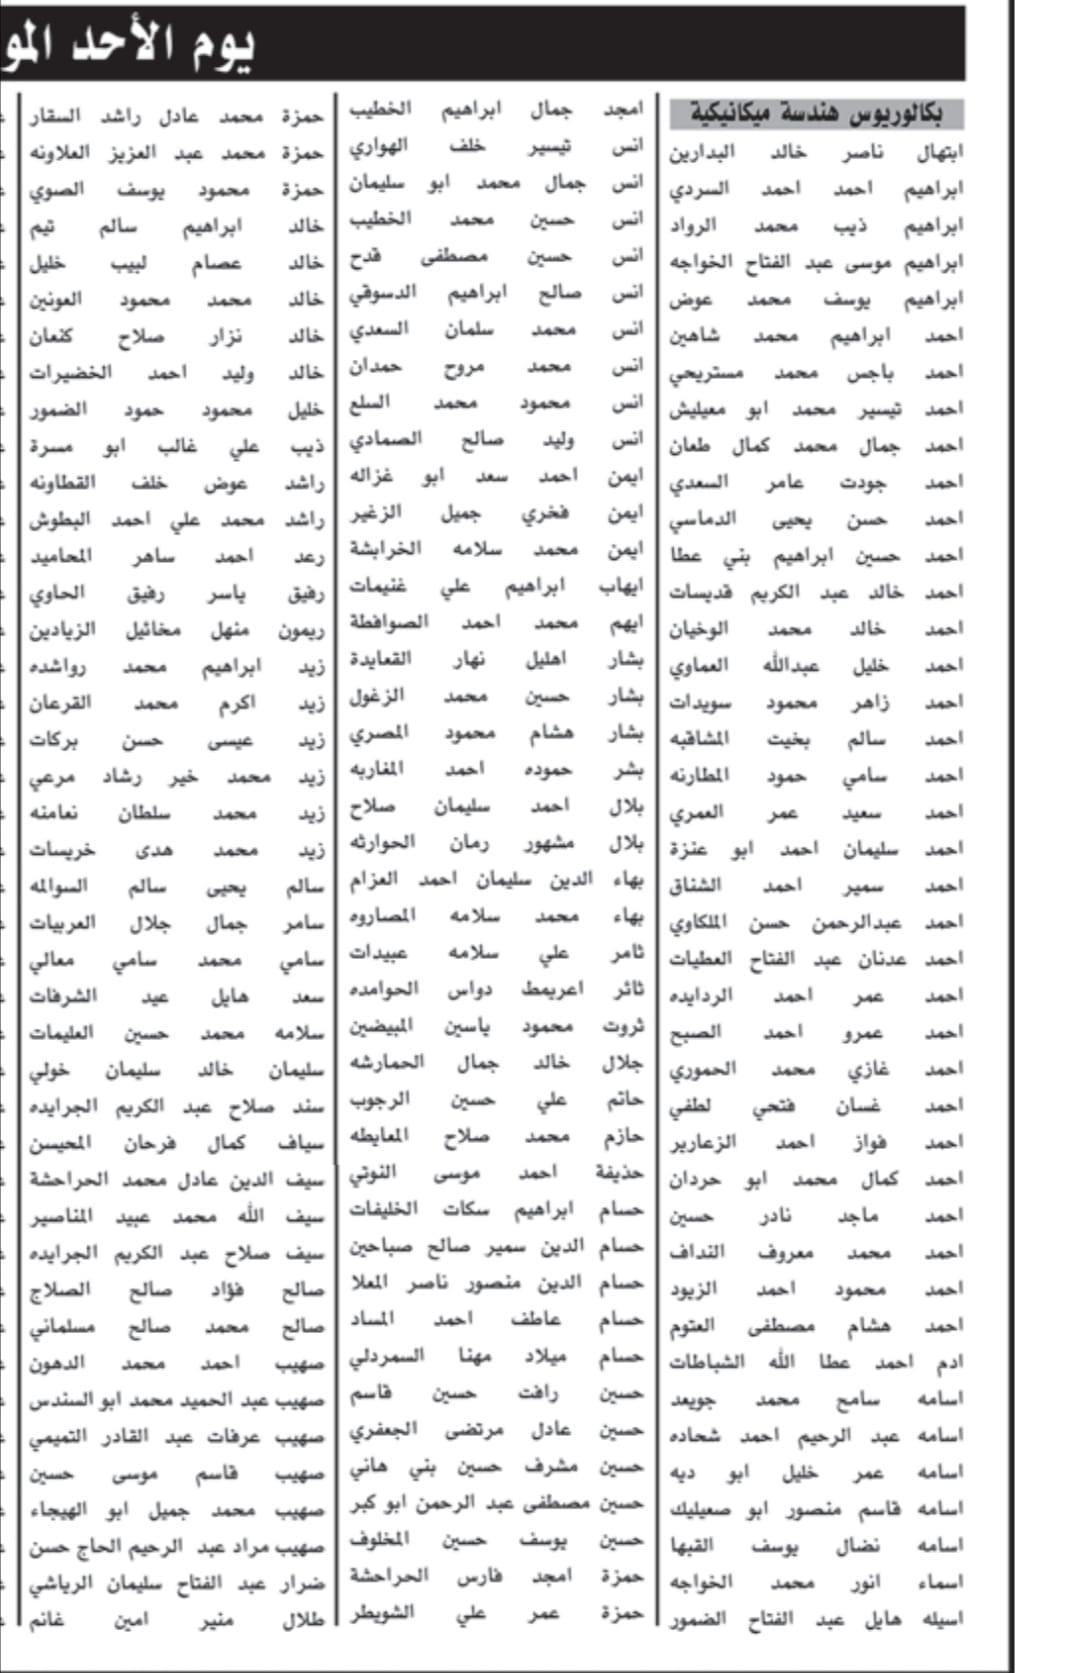 يوم الأحد المو
بكالوريوس هندسة ميكانيكية
ابتهال ناصر خالد البدارين
ابراهيم احمد احمد السردي
ابراهيم ذيب محمد الرواد
ابراهيم موسى عبد الفتاح الخواجه
ابراهيم يوسف محمد عوض
احمد ابراهيم محمد شاهين
احمد باجس محمد مستريحي
احمد تيسير محمد ابو معيليش
احمد جمال محمد كمال طعان
احمد جودت عامر السعدي
احمد حسن يحيى الدماسي
احمد حسين ابراهيم بني عطا
احمد خالد عبد الكريم قديسات
احمد خالد محمد الوخيان
احمد خليل عبدالله العماوي
احمد زاهر محمود سويدات
احمد سالم بخيت المشاقبه
احمد سامي حمود المطارنه
احمد سعيد عمر العمري
احمد سليمان احمد ابو عنزة
احمد سمير احمد الشناق
احمد عبدالرحمن حسن الملكاوي
احمد عدنان عبد الفتاح العطيات
احمد عمر احمد الردايده
احمد عمرو احمد الصبح
احمد غازي محمد الحموري
احمد غسان فتحي لطفي
احمد فواز احمد الزعارير
احمد كمال محمد ابو حردان
احمد ماجد نادر حسين
احمد محمد معروف النداف
احمد محمود احمد الزيود
احمد هشام مصطفى العتوم
ادم احمد عطا الله الشباطات
اسامه سامح محمد جويعد
اسامه عبد الرحيم احمد شحاده
اسامه عمر خليل ابو ديه
اسامه قاسم منصور ابو صعيليك
اسامه نضال يوسف القبها
اسماء انور محمد الخواجه
اسيله هايل عبد الفتاح الضمور
امجد جمال ابراهيم الخطيب
انس تيسير خلف الهواري
انس جمال محمد ابو سليمان
انس حسين محمد الخطيب
انس حسين مصطفى قدح
انس صالح ابراهيم الدسوقي
انس محمد سلمان السعدي
انس محمد مروح حمدان
انس محمود محمد السلع
انس وليد صالح الصمادي
ايمن احمد سعد ابو غزاله
ايمن فخري جميل الزغير
ايمن محمد سلامه الخرابشة
ايهاب ابراهيم علي غنيمات
ايهم محمد احمد الصوافطة
بشار اهليل نهار القعايدة
بشار حسين محمد الزغول
بشار هشام محمود المصري
بشر حموده احمد المغاربه
بلال احمد سليمان صلاح
بلال مشهور رمان الحوارثه
بهاء الدين سليمان احمد العزام
بهاء محمد سلامه المصاروه
ثامر علي سلامه عبيدات
ثائر اعريمط دواس الحوامده
ثروت محمود ياسين المبيضين
جلال خالد جمال الحمارشه
حاتم علي حسين الرجوب
حازم محمد صلاح المعايطه
حذيفة احمد موسى النوتي
حسام ابراهيم سكات الخليفات
حسام الدين سمير صالح صباحين
حسام الدين منصور ناصر المعلا
حسام عاطف احمد المساد
حسام ميلاد مهنا السمردلي
حسين رافت حسين قاسم
حسين عادل مرتضى الجعفري
حسين مشرف حسين بني هاني
حسين مصطفى عبد الرحمن ابو كبر
حسين يوسف حسين المخلوف
حمزة امجد فارس الحراحشة
حمزة عمر علي الشويطر
حمزة محمد عادل راشد السقار
حمزة محمد عبد العزيز العلاونه
حمزة محمود يوسف الصوي
خالد ابراهيم سالم تيم
خالد عصام لبيب خليل
خالد محمد محمود العونين
خالد نزار صلاح كنعان
خالد وليد احمد الخضيرات
خليل محمود حمود الضمور
ذيب علي غالب ابو مسرة
راشد عوض خلف القطاونه
راشد محمد علي احمد البطوش
رعد احمد ساهر المحاميد
رفيق ياسر رفيق الحاوي
ريمون منهل مخائيل الزيادين
زيد ابراهيم محمد رواشده
زيد اكرم محمد القرعان
زيد عيسى حسن بركات
زيد محمد خير رشاد مرعي
زيد محمد سلطان نعامنه
زيد محمد هدى خريسات
سالم يحيى سالم السوالمه
سامر جمال جلال العربيات
سامي محمد سامي معالي
سعد هايل عيد الشرفات
سلامه محمد حسين العليمات
سليمان خالد سليمان خولي
سند صلاح عبد الكريم الجرايده
سياف كمال فرحان المحيسن
سيف الدين عادل محمد الحراحشة
سيف الله محمد عبيد المناصير
سيف صلاح عبد الكريم الجرايده
صالح فؤاد صالح الصلاج
صالح محمد صالح مسلماني
صهيب احمد محمد الدهون
صهيب عبد الحميد محمد ابو السندس
صهيب عرفات عبد القادر التميمي
صهيب قاسم موسى حسين
صهيب محمد جميل ابو الهيجاء
صهيب مراد عبد الرحيم الحاج حسن
ضرار عبد الفتاح سليمان الرياشي
طلال منير امين غانم